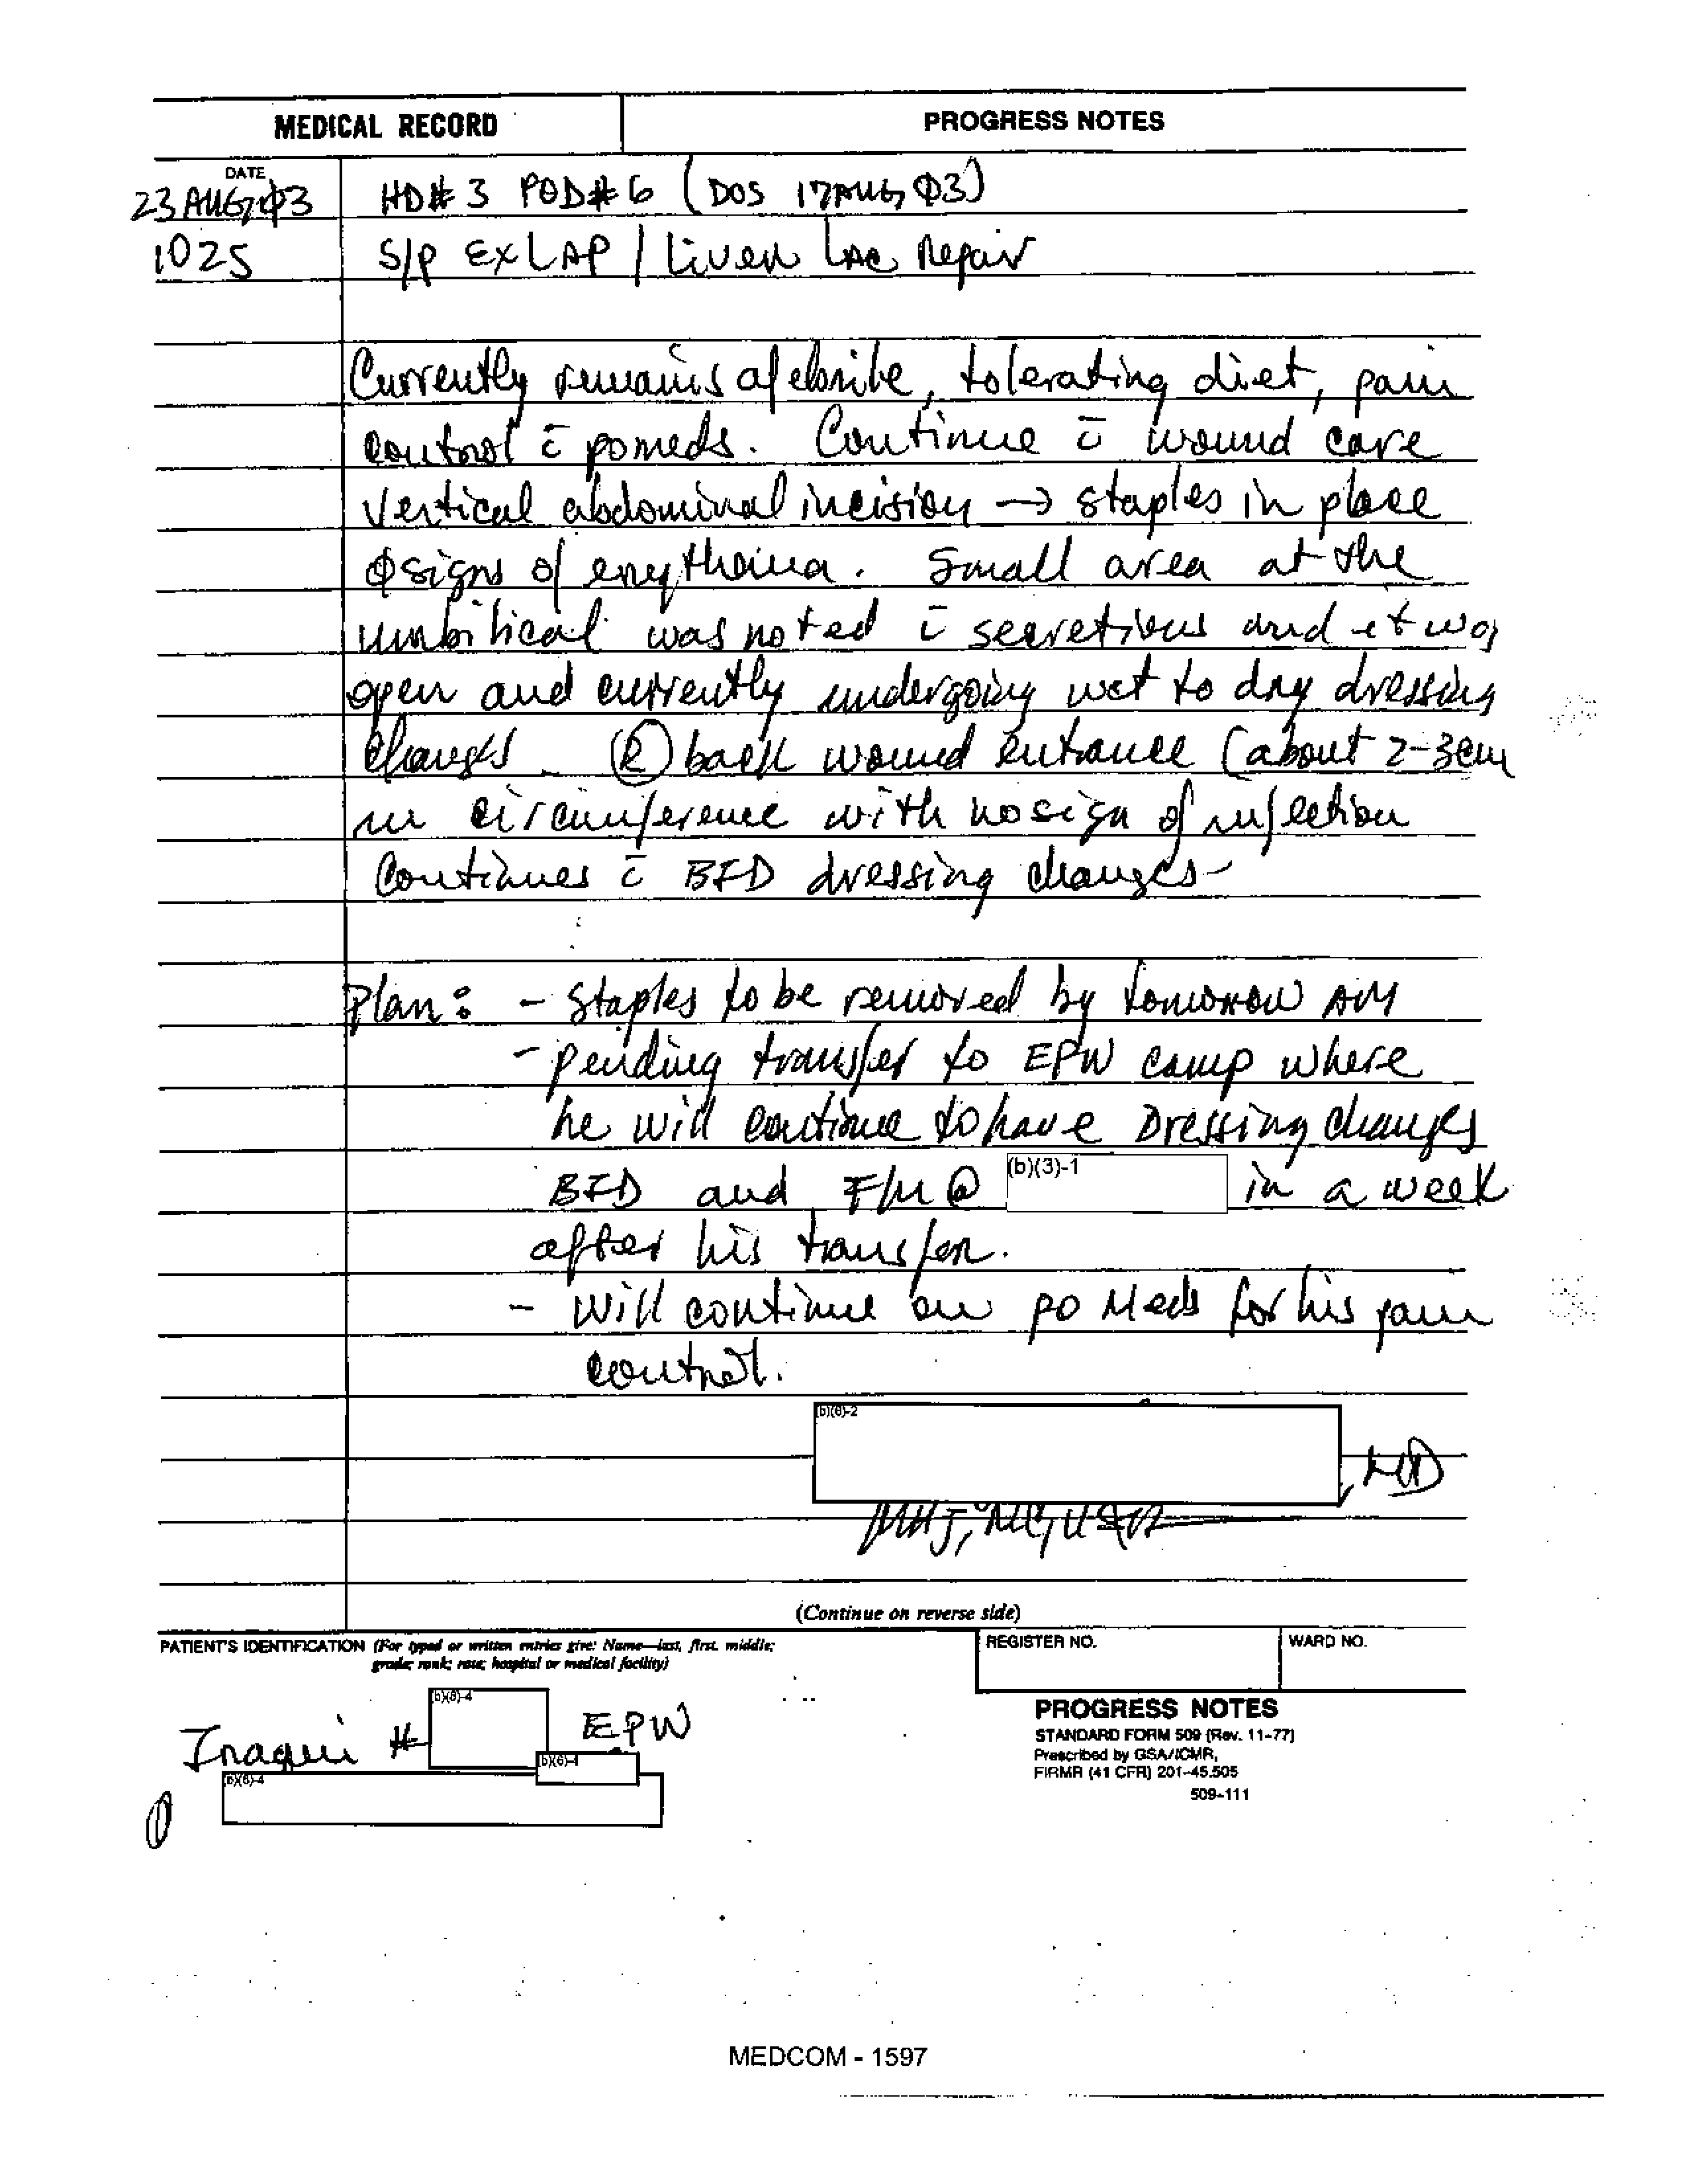 MEDICAL RECORD
PROGRESS NOTES
DATE
23 AUG φ3
HD# 3 POD# 6 (DOS 17AUG φ3)
1025
S/P EXLAP / Liver LAC Repair
Currently remains afebrile, tolerating diet, pain
control c̄ po meds. Continue c̄ wound care
Vertical abdominal incision → staples in place
φ signs of erythema. Small area at the
umbilical was noted c̄ secretions and it was
open and currently undergoing wet to dry dressing
changes. Ⓡ back wound entrance (about 2-3cm
in circumference with no sign of infection
Continues c̄ BID dressing changes-
Plan: - Staples to be removed by tomorrow AM
- pending transfer to EPW camp where
he will continue to have Dressing changes
BID and F/U @ (b)(3)-1 in a week
after his transfer.
- Will continue on po Meds for his pain
control.
(b)(6)-2
, MD
MAJ, MC, USAR
(Continue on reverse side)
PATIENT'S IDENTIFICATION (For typed or written entries give: Name—last, first, middle;
grade; rank; rate; hospital or medical facility)
REGISTER NO.
WARD NO.
(b)(6)-4
Iraqui # EPW
(b)(6)-4
(b)(6)-4
PROGRESS NOTES
STANDARD FORM 509 (Rev. 11-77)
Prescribed by GSA/ICMR,
FIRMR (41 CFR) 201-45.505
509-111
MEDCOM - 1597